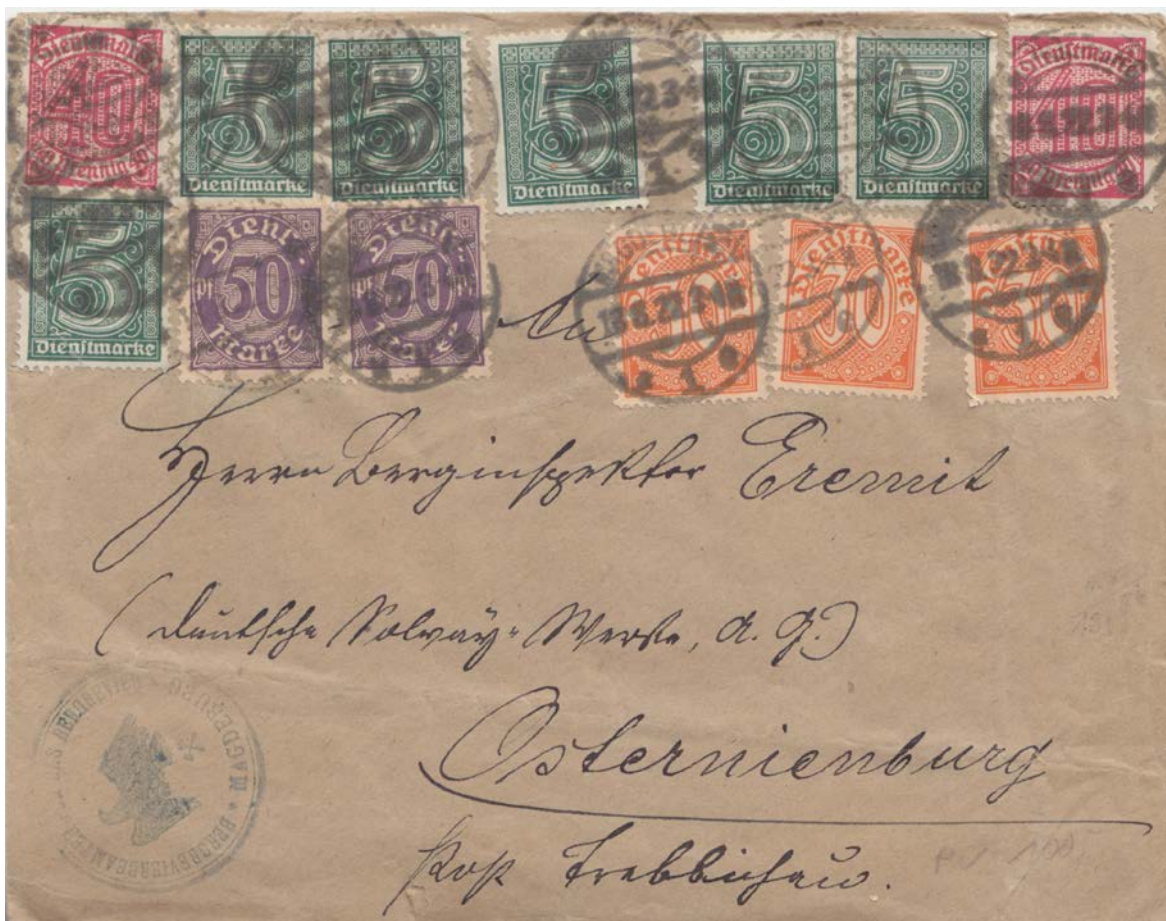 Dienstmarke 40 40 Pfennig 40
5 Dienstmarke
5 Dienstmarke
5 Dienstmarke
5 Dienstmarke
5 Dienstmarke
Dienstmarke 40 Pfennig
5 Dienstmarke
Dienst- Pf 50 Marke
Dienst- 50 Pf. Marke
Dienstmarke 30
Dienstmarke 30
Dienstmarke 30
An
Herrn Berginspektor Eremit
(Deutsche Solvay-Werke, A. G.)
Osternienburg
Post Trebbichau.
MAGDEBURG * BERGREVIERBEAMTER DES BERGREVIERS